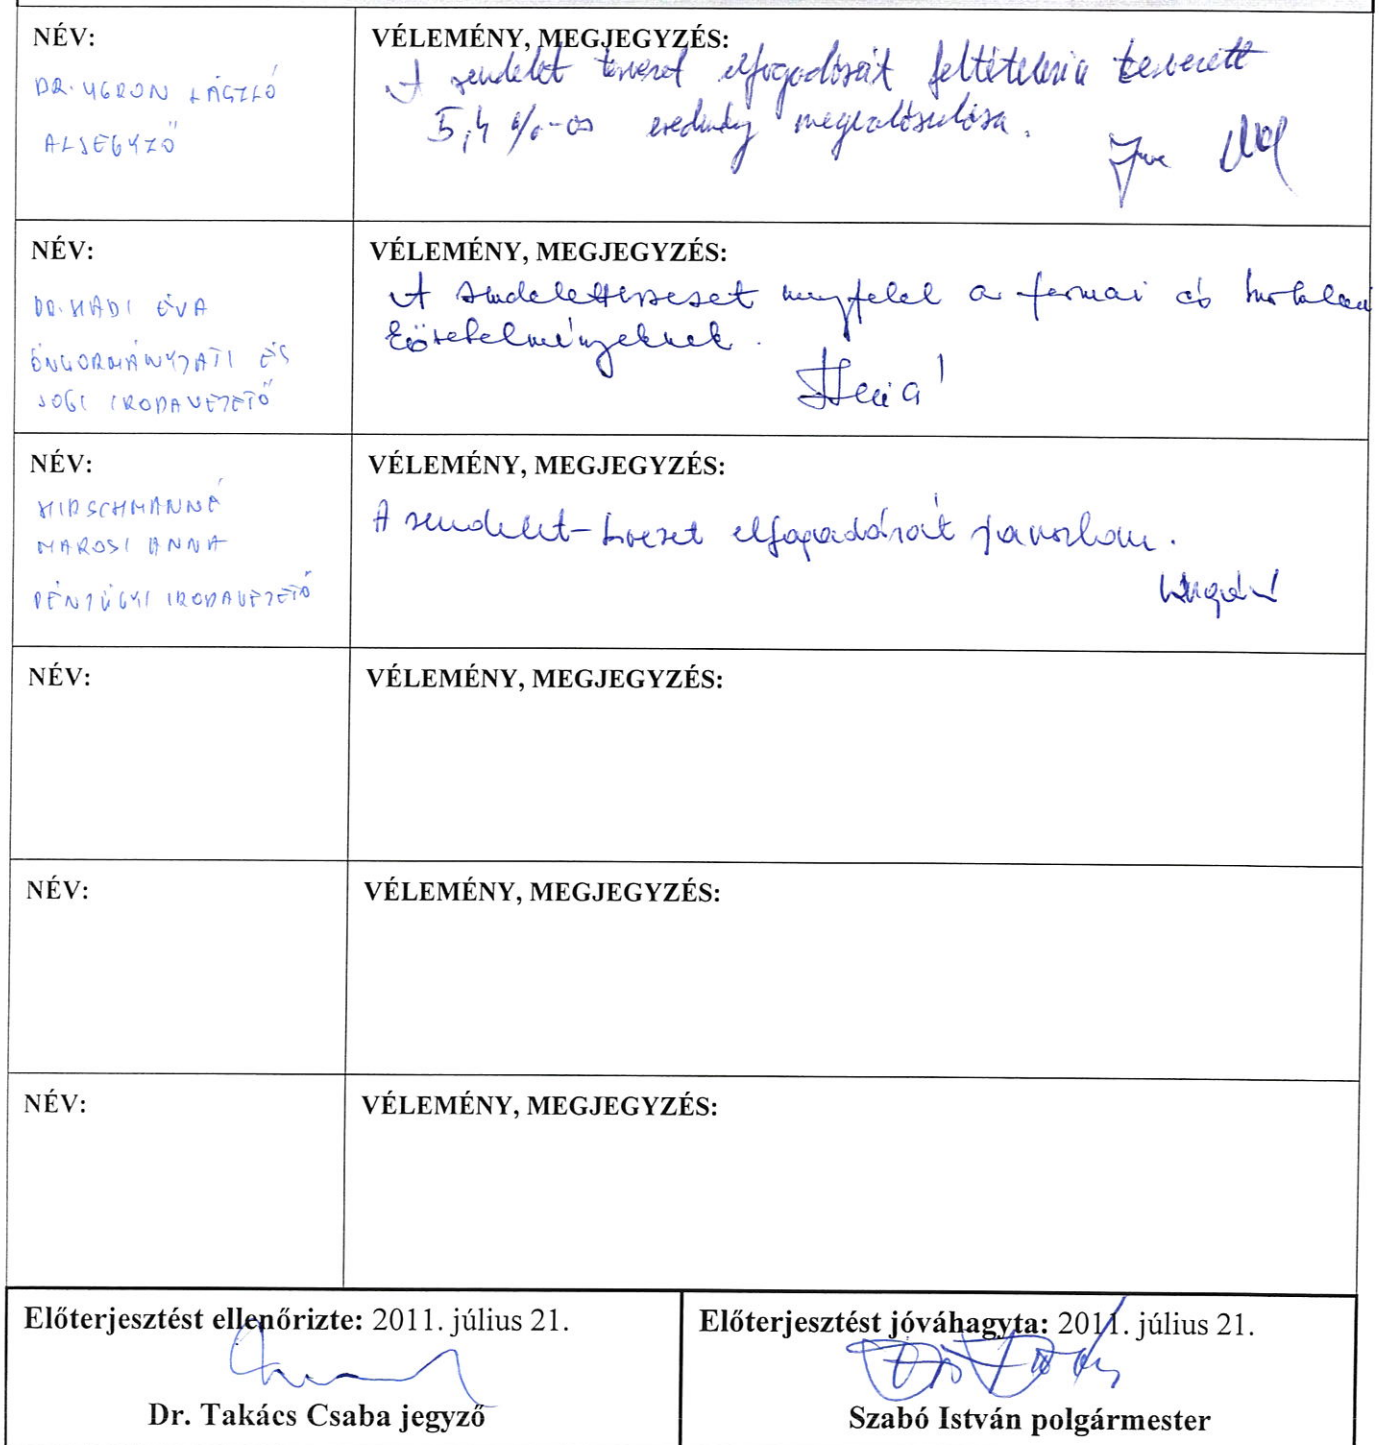 NÉV:
DR. UGRON LÁSZLÓ
ALJEGYZŐ
VÉLEMÉNY, MEGJEGYZÉS:
A rendelet elfogadását
5,4 %-os eredmény megvalósulása.
NÉV:
DR. HÁDI ÉVA
ÖNKORMÁNYZATI ÉS
JOGI IRODAVEZETŐ
VÉLEMÉNY, MEGJEGYZÉS:
A rendelettervezet megfelel a formai és tartalmi
követelményeknek.
NÉV:
HIRSCHMANNÉ
MAROSI ANNA
PÉNZÜGYI IRODAVEZETŐ
VÉLEMÉNY, MEGJEGYZÉS:
A rendelet-tervezet elfogadását javaslom.
NÉV:
VÉLEMÉNY, MEGJEGYZÉS:
NÉV:
VÉLEMÉNY, MEGJEGYZÉS:
NÉV:
VÉLEMÉNY, MEGJEGYZÉS:
Előterjesztést ellenőrizte: 2011. július 21.
Dr. Takács Csaba jegyző
Előterjesztést jóváhagyta: 2011. július 21.
Szabó István polgármester